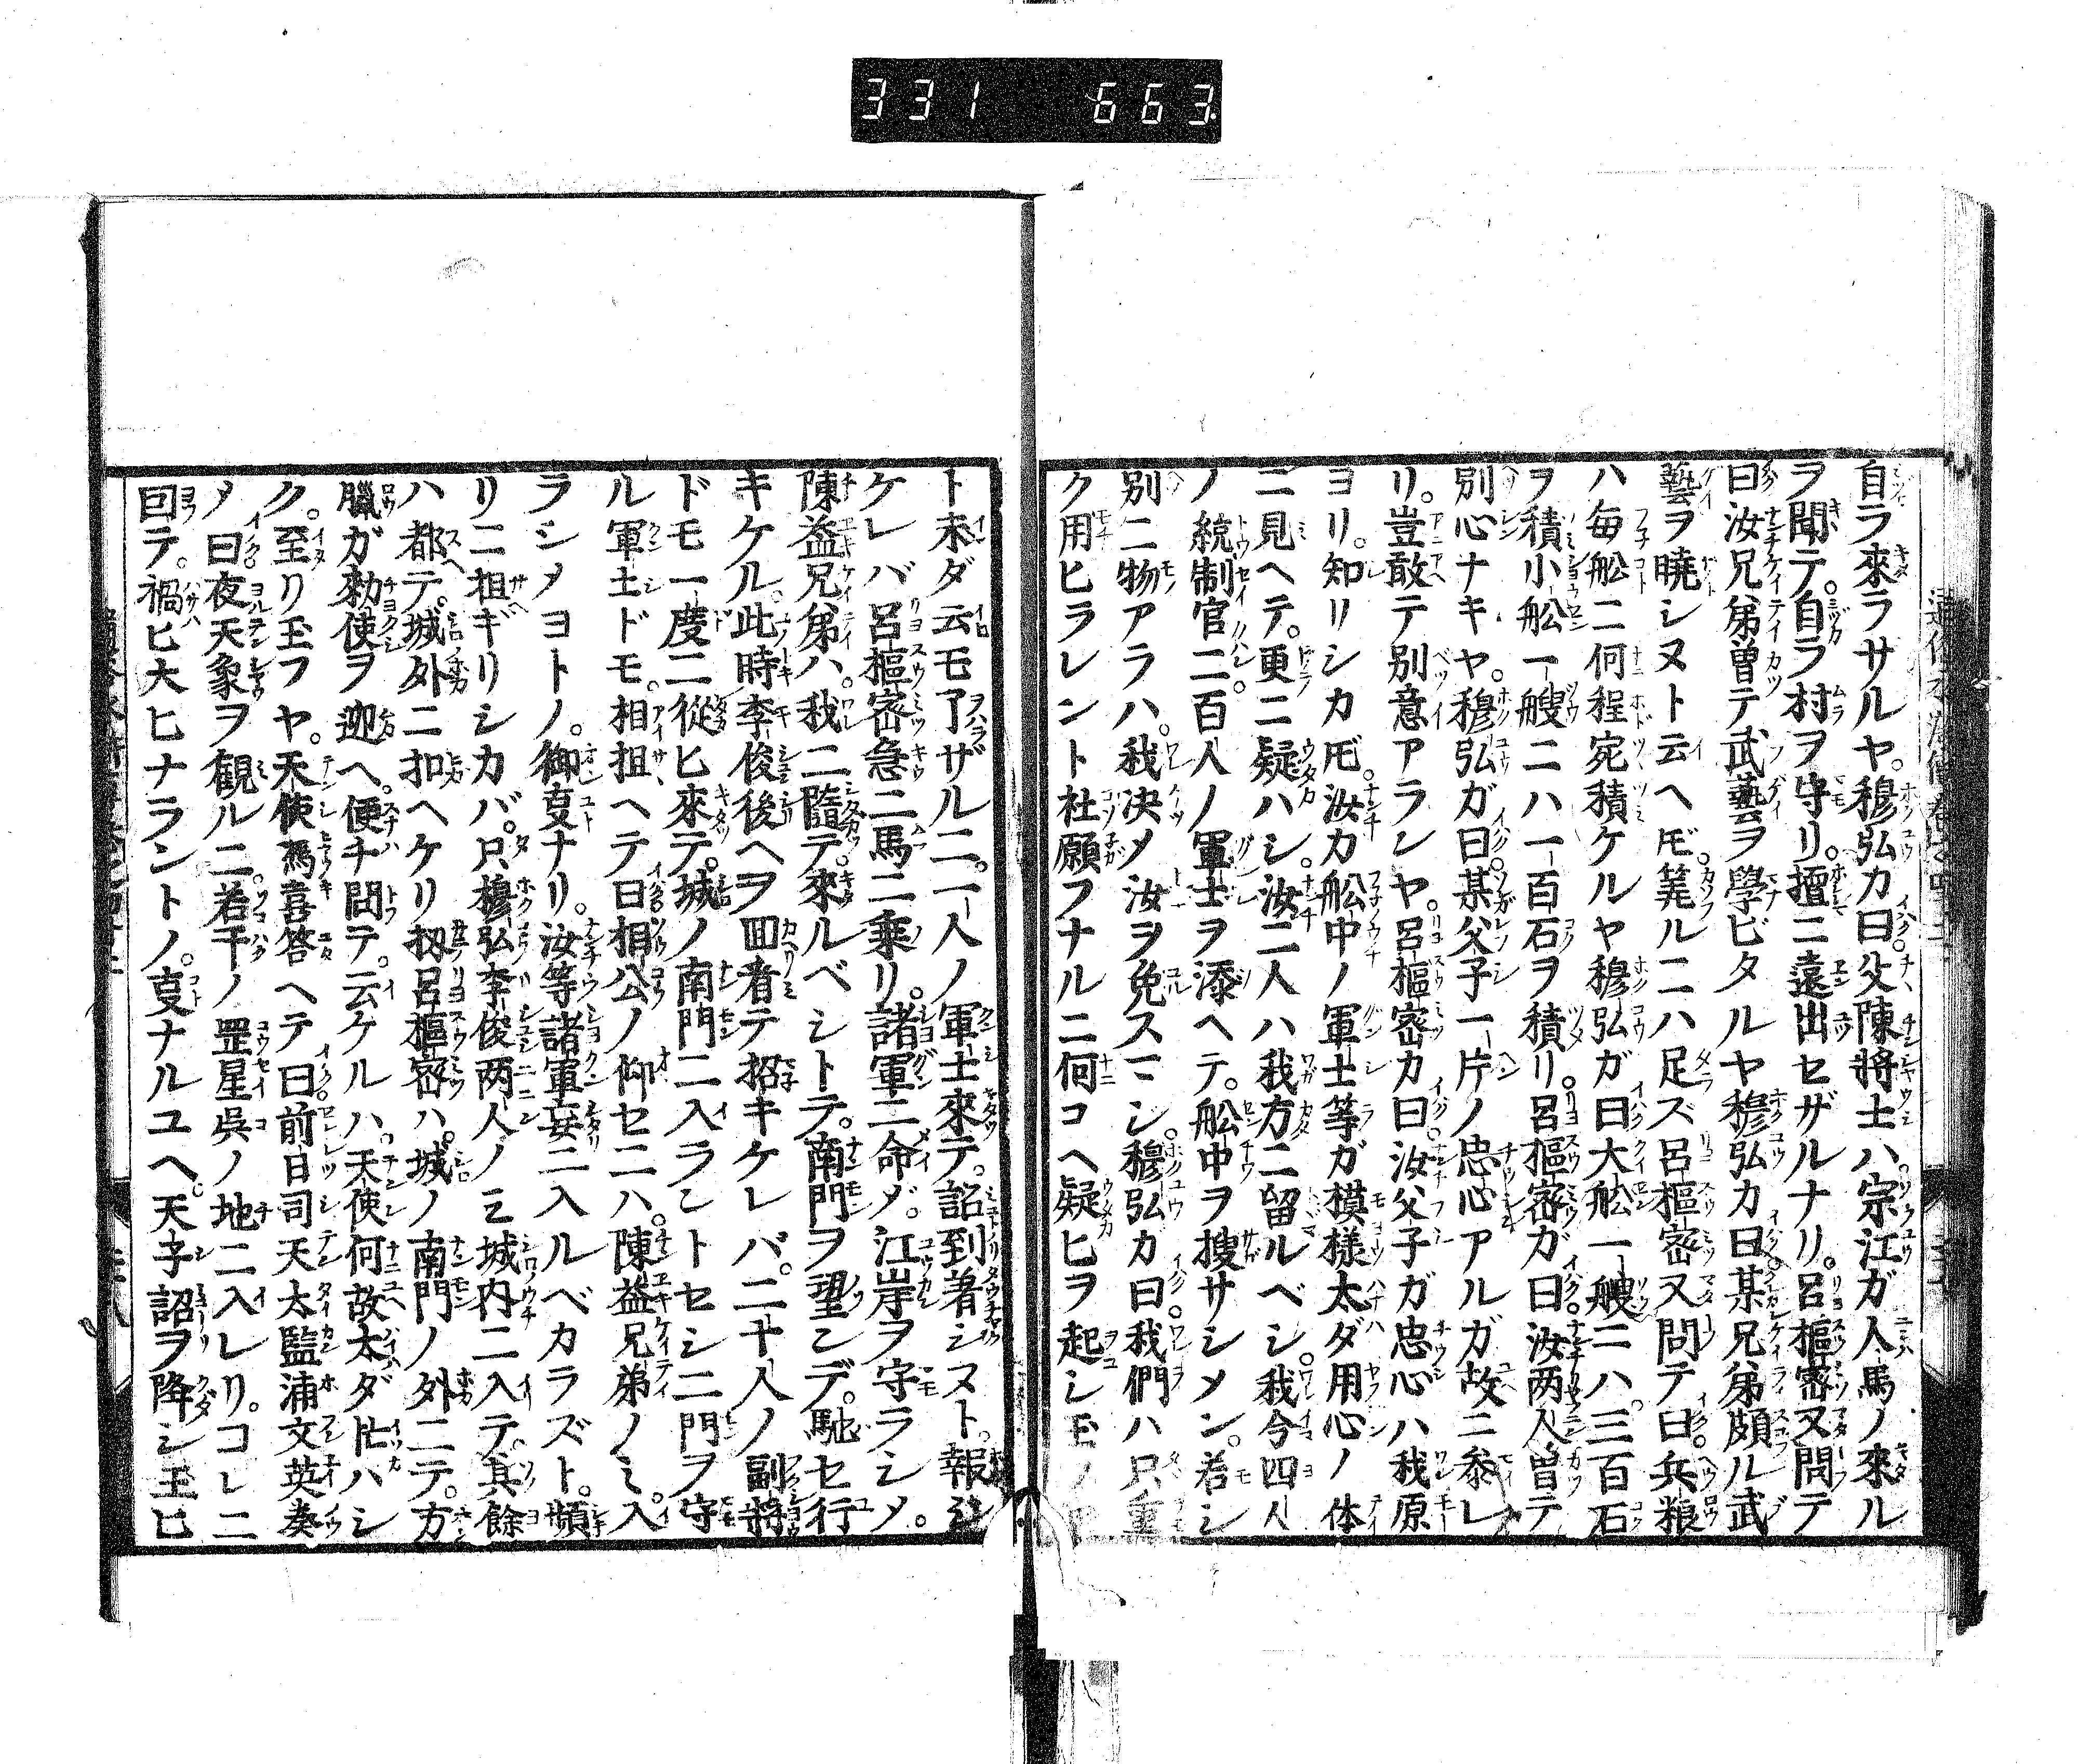 331 663
自ラ來ラサルヤ。穆弘カ曰父陳將士ハ。宗江ガ人馬ノ來ル
ヲ聞テ。自ラ村ヲ守リ。擅ニ遠出セザルナリ。呂樞密又問テ
曰汝兄弟曽テ武藝ヲ學ビタルヤ穆弘カ曰某兄弟頗ル武
藝ヲ曉シヌト云ヘ𪜈。筭ルニハ足ズ呂樞密又問テ曰。兵粮
ハ毎舩ニ何程宛積ケルヤ穆弘ガ曰大舩一艘ニハ。三百石
ヲ積小舩一艘ニハ一百石ヲ積リ。呂樞密ガ曰。汝两人曽テ
別心ナキヤ。穆弘ガ曰。某父子一片ノ忠心アルガ故ニ叅レ
リ。豈敢テ別意アランヤ。呂樞密カ曰。汝父子ガ忠心ハ我原
ヨリ。知リシカ𪜈。汝カ舩中ノ軍士等ガ模樣太ダ用心ノ体
ニ見ヘテ。更ニ疑ハシ。汝二人ハ我方ニ留ルベシ。我今四人
ノ統制官ニ。百人ノ軍士ヲ添ヘテ。舩中ヲ搜サシメン。若シ
別ニ物アラハ。我决メ汝ヲ免スマシ。穆弘カ曰。我們ハ只重
ク用ヒラレント杜願フナルニ何コヘ疑ヒヲ起シ玉ノ
ト未ダ云モ了ザルニ。一人ノ軍士來テ。詔到着シヌト。報
ケレバ呂樞密急ニ馬ニ乘リ。諸軍ニ命ダ。江岸ヲ守ラシメ。
陳益兄弟ハ。我ニ隨テ。來ルベシトテ。南門ヲ望ンデ。馳セ行
キケル。此時李俊後ヘヲ囬看テ招キケレバ。二十人ノ副將
ドモ一度ニ從ヒ來テ。城ノ南門ニ入ラントセシニ門ヲ守
ル軍士ドモ。相担ヘテ曰相公ノ仰セニハ。陳益兄弟ノミ。入
ラシメヨトノ。御㕝ナリ。汝等諸軍妄ニ入ルベカラズト。頻
リニ担ギリシカバ。只穆弘李俊两人ノミ城内ニ入テ。其餘
ハ都テ。城外ニ扣ヘケリ扨呂樞密ハ。城ノ南門ノ外ニテ。方
臘ガ勅使ヲ迎ヘ。便チ問テ。云ケルハ。天使何故太ダ忙ハシ
ク。至リ玉フヤ。天使馮喜答ヘテ曰前日司天太監浦文英奏
メ曰夜天象ヲ觀ルニ。若干ノ罡星呉ノ地ニ入レリ。コレニ
回テ。禍ヒ大ヒナラントノ。㕝ナルユヘ。天子詔ヲ降シ玉ヒ